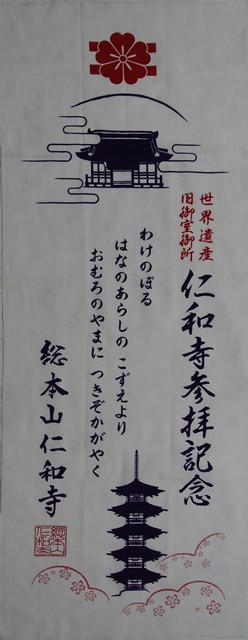 世界遺産
旧御室御所
仁和寺参拝記念
わけのぼる
はなのあらしの こずえより
おむろのやまに つきぞかがやく
総本山仁和寺
総本山
仁和寺